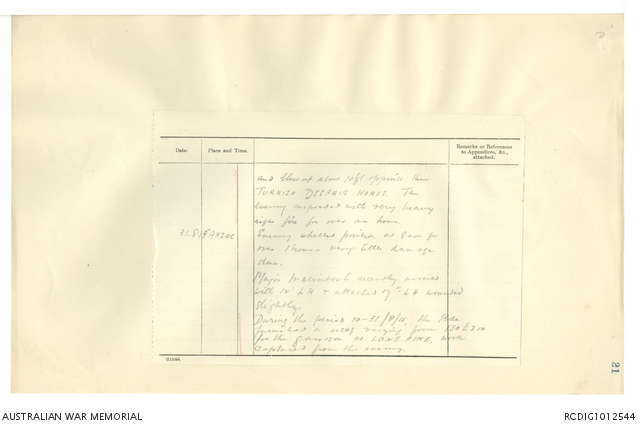 Date.
Place and Time.
Remarks or References
to Appendices, &c.,
attached.
and blew at about 10ft opposite the
TURKISH DESPAIR WORKS. The
enemy responded with very heavy
rifle fire for over an hour
31.8.15 ANZAC
Enemy shelled position at 8am for
over 1 hour very little damage
done.
Major McIntosh recently arrived
with 12 LH & attached 9th LH wounded
slightly
During the period 10-31/8/15 the Bde
furnished a varying from
for the garrison at LONE PINE, were
captured from the enemy.
21
AUSTRALIAN WAR MEMORIAL
RCDIG1012544